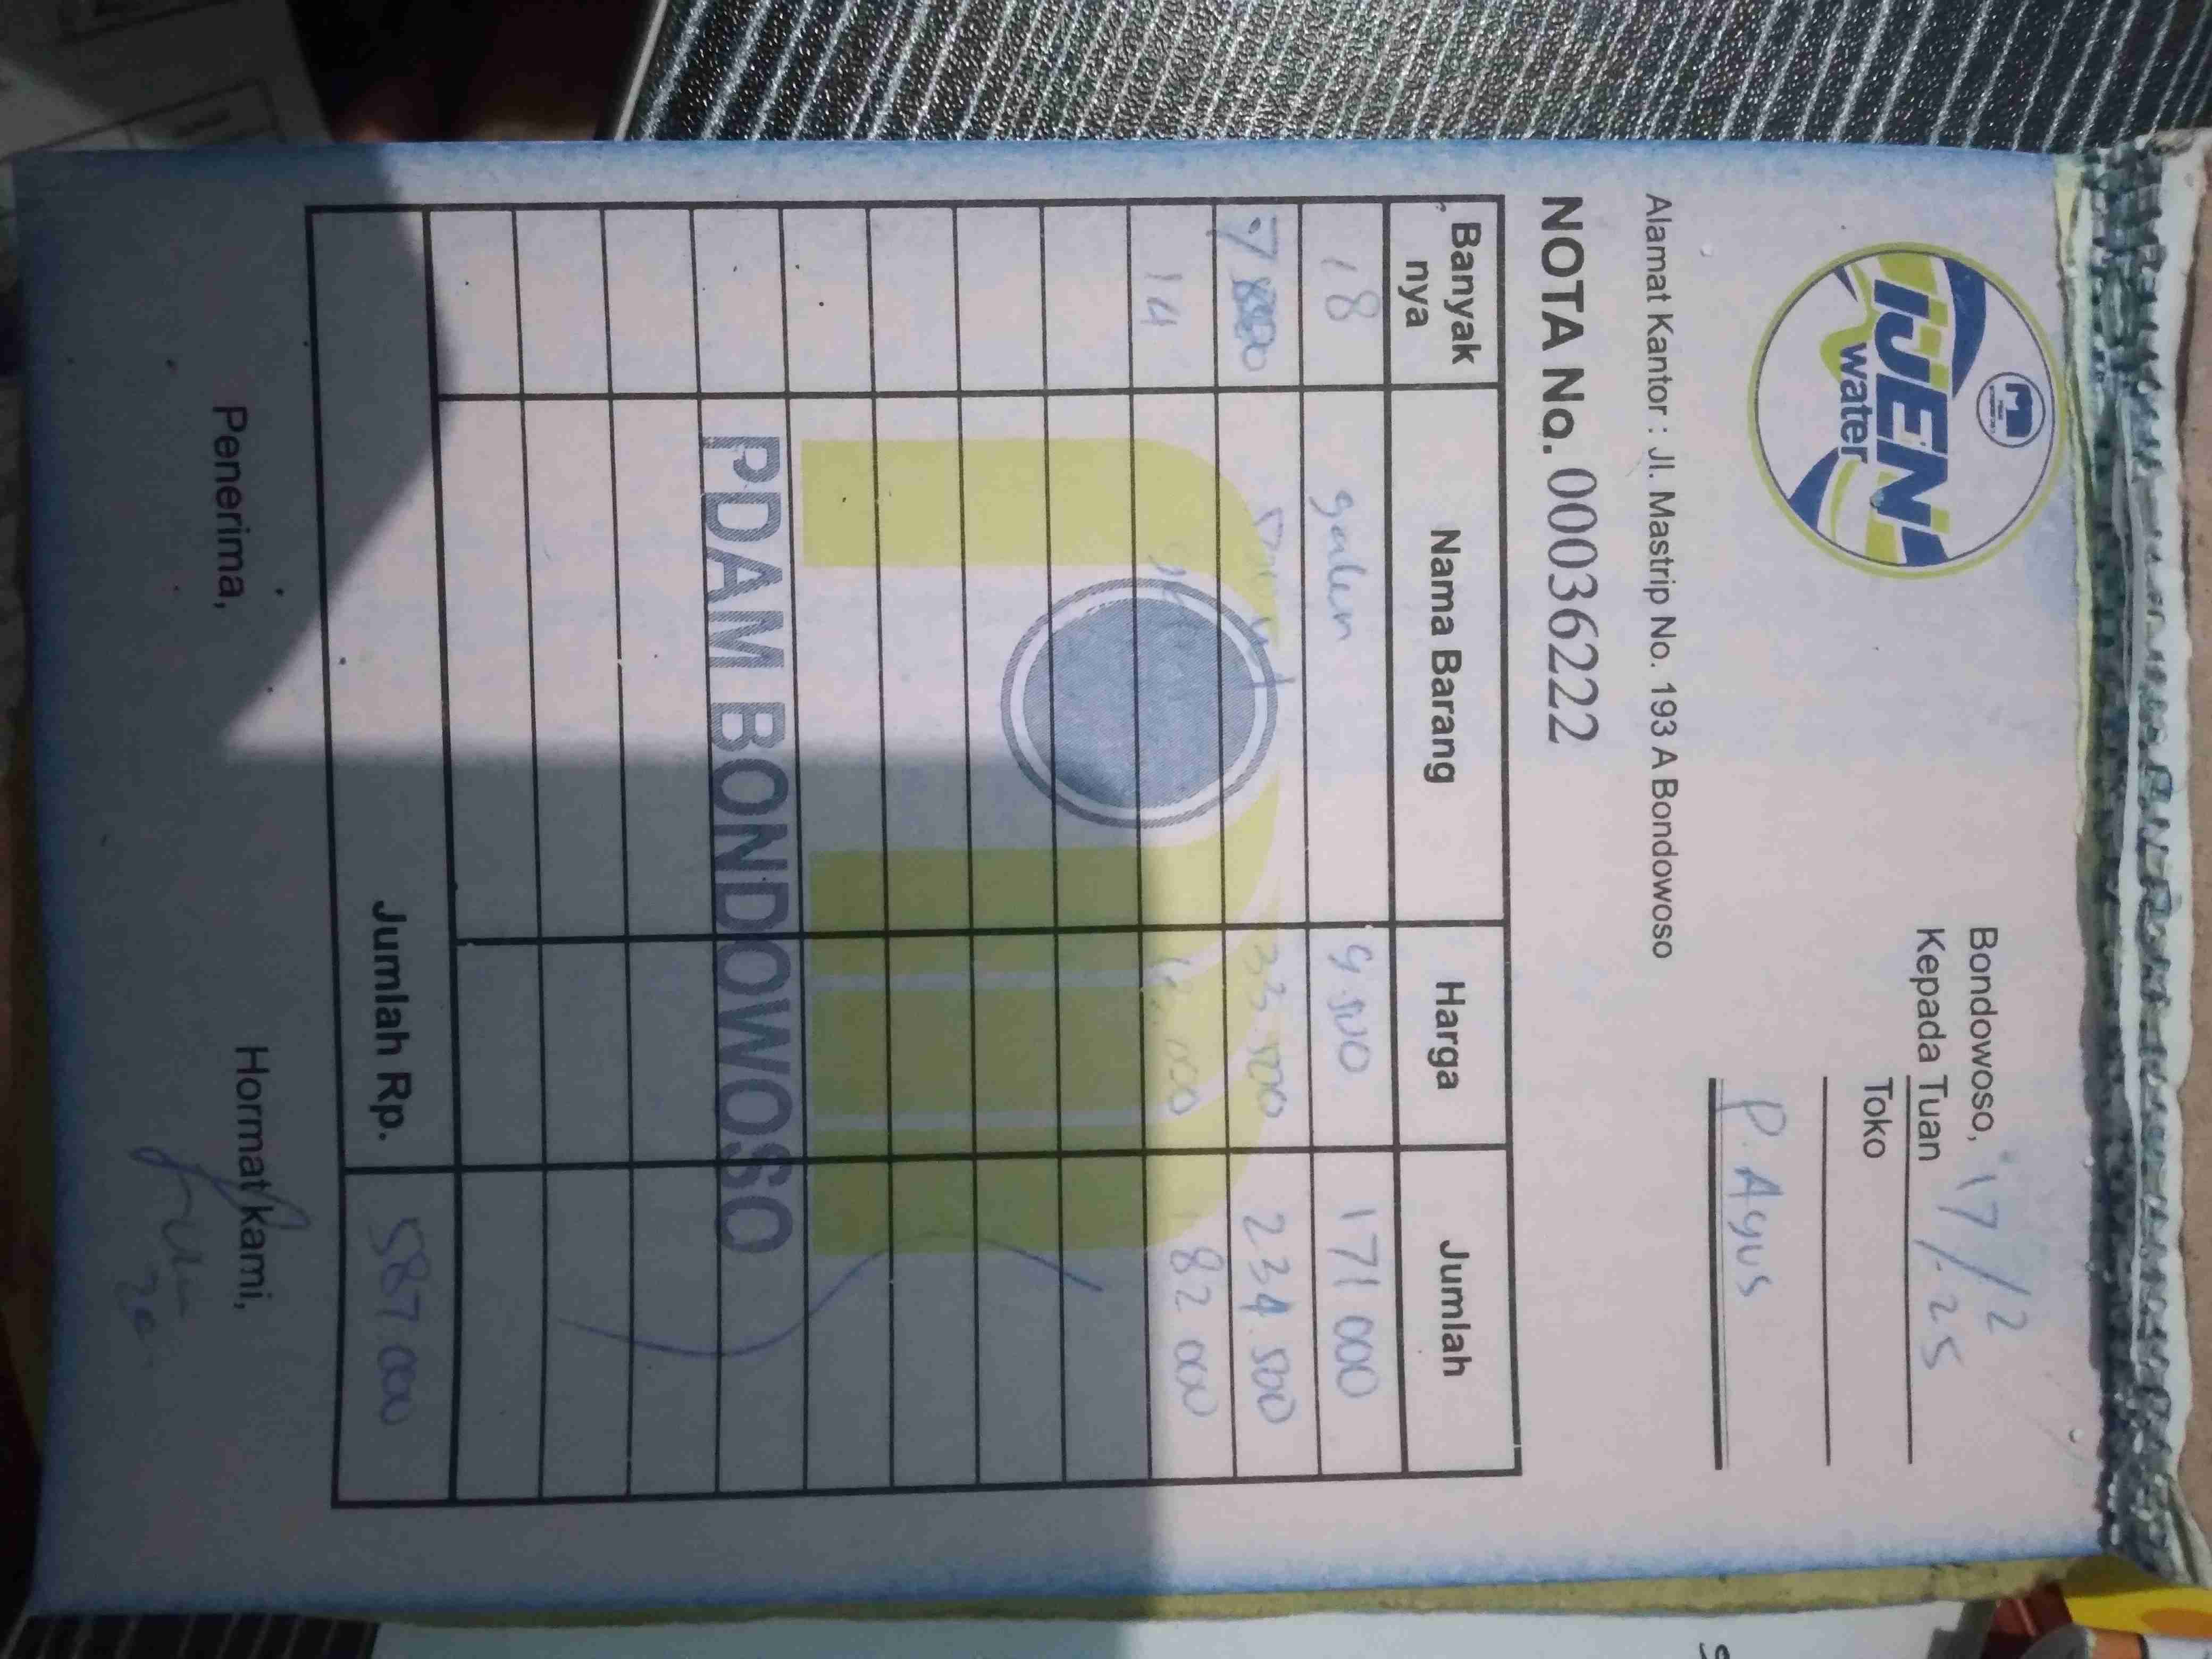 IJEN
water
Bondowoso, 17/2-25
Kepada Tuan
Toko
P. Agus
Alamat Kantor : Jl. Mastrip No. 193 A Bondowoso
NOTA No. 00036222
Banyak nya Nama Barang Harga Jumlah
18 galen 9.500 171 000
7 33.500 234.500
14 182 000
PDAM BONDOWOSO
Jumlah Rp. 587 000
Penerima, Hormat kami,